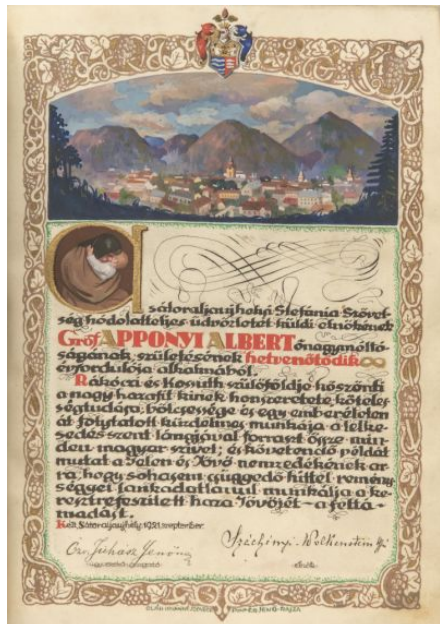 A
sátoraljaujhelyi Stefánia Szövet-
ség hódolatteljes üdvözletét küldi elnökének
Gróf APPONYI ALBERT őnagymélto-
ságának, születésének hetvenötödik
évfordulója alkalmából.
Rákóczi és Kossuth szülőföldje köszönti
a nagy hazafit kinek honszeretete, köteles-
ségtudása, bölcsessége és egy emberéleten
át folytatott küzdelmes munkája a lelke-
sedés szent lángjával forraszt össze min-
den magyar szivet; és követendő példát
mutat a Jelen és Jövő nemzedékének ar-
ra, hogy sohasem csüggedő hittel remény-
séggel lankadatlanul munkálja a ke-
resztrefeszitett haza Jövőjét - a feltá-
madást.
Kelt, Sátoraljaujhely, 1921. szeptember.
Juhász Jenőné